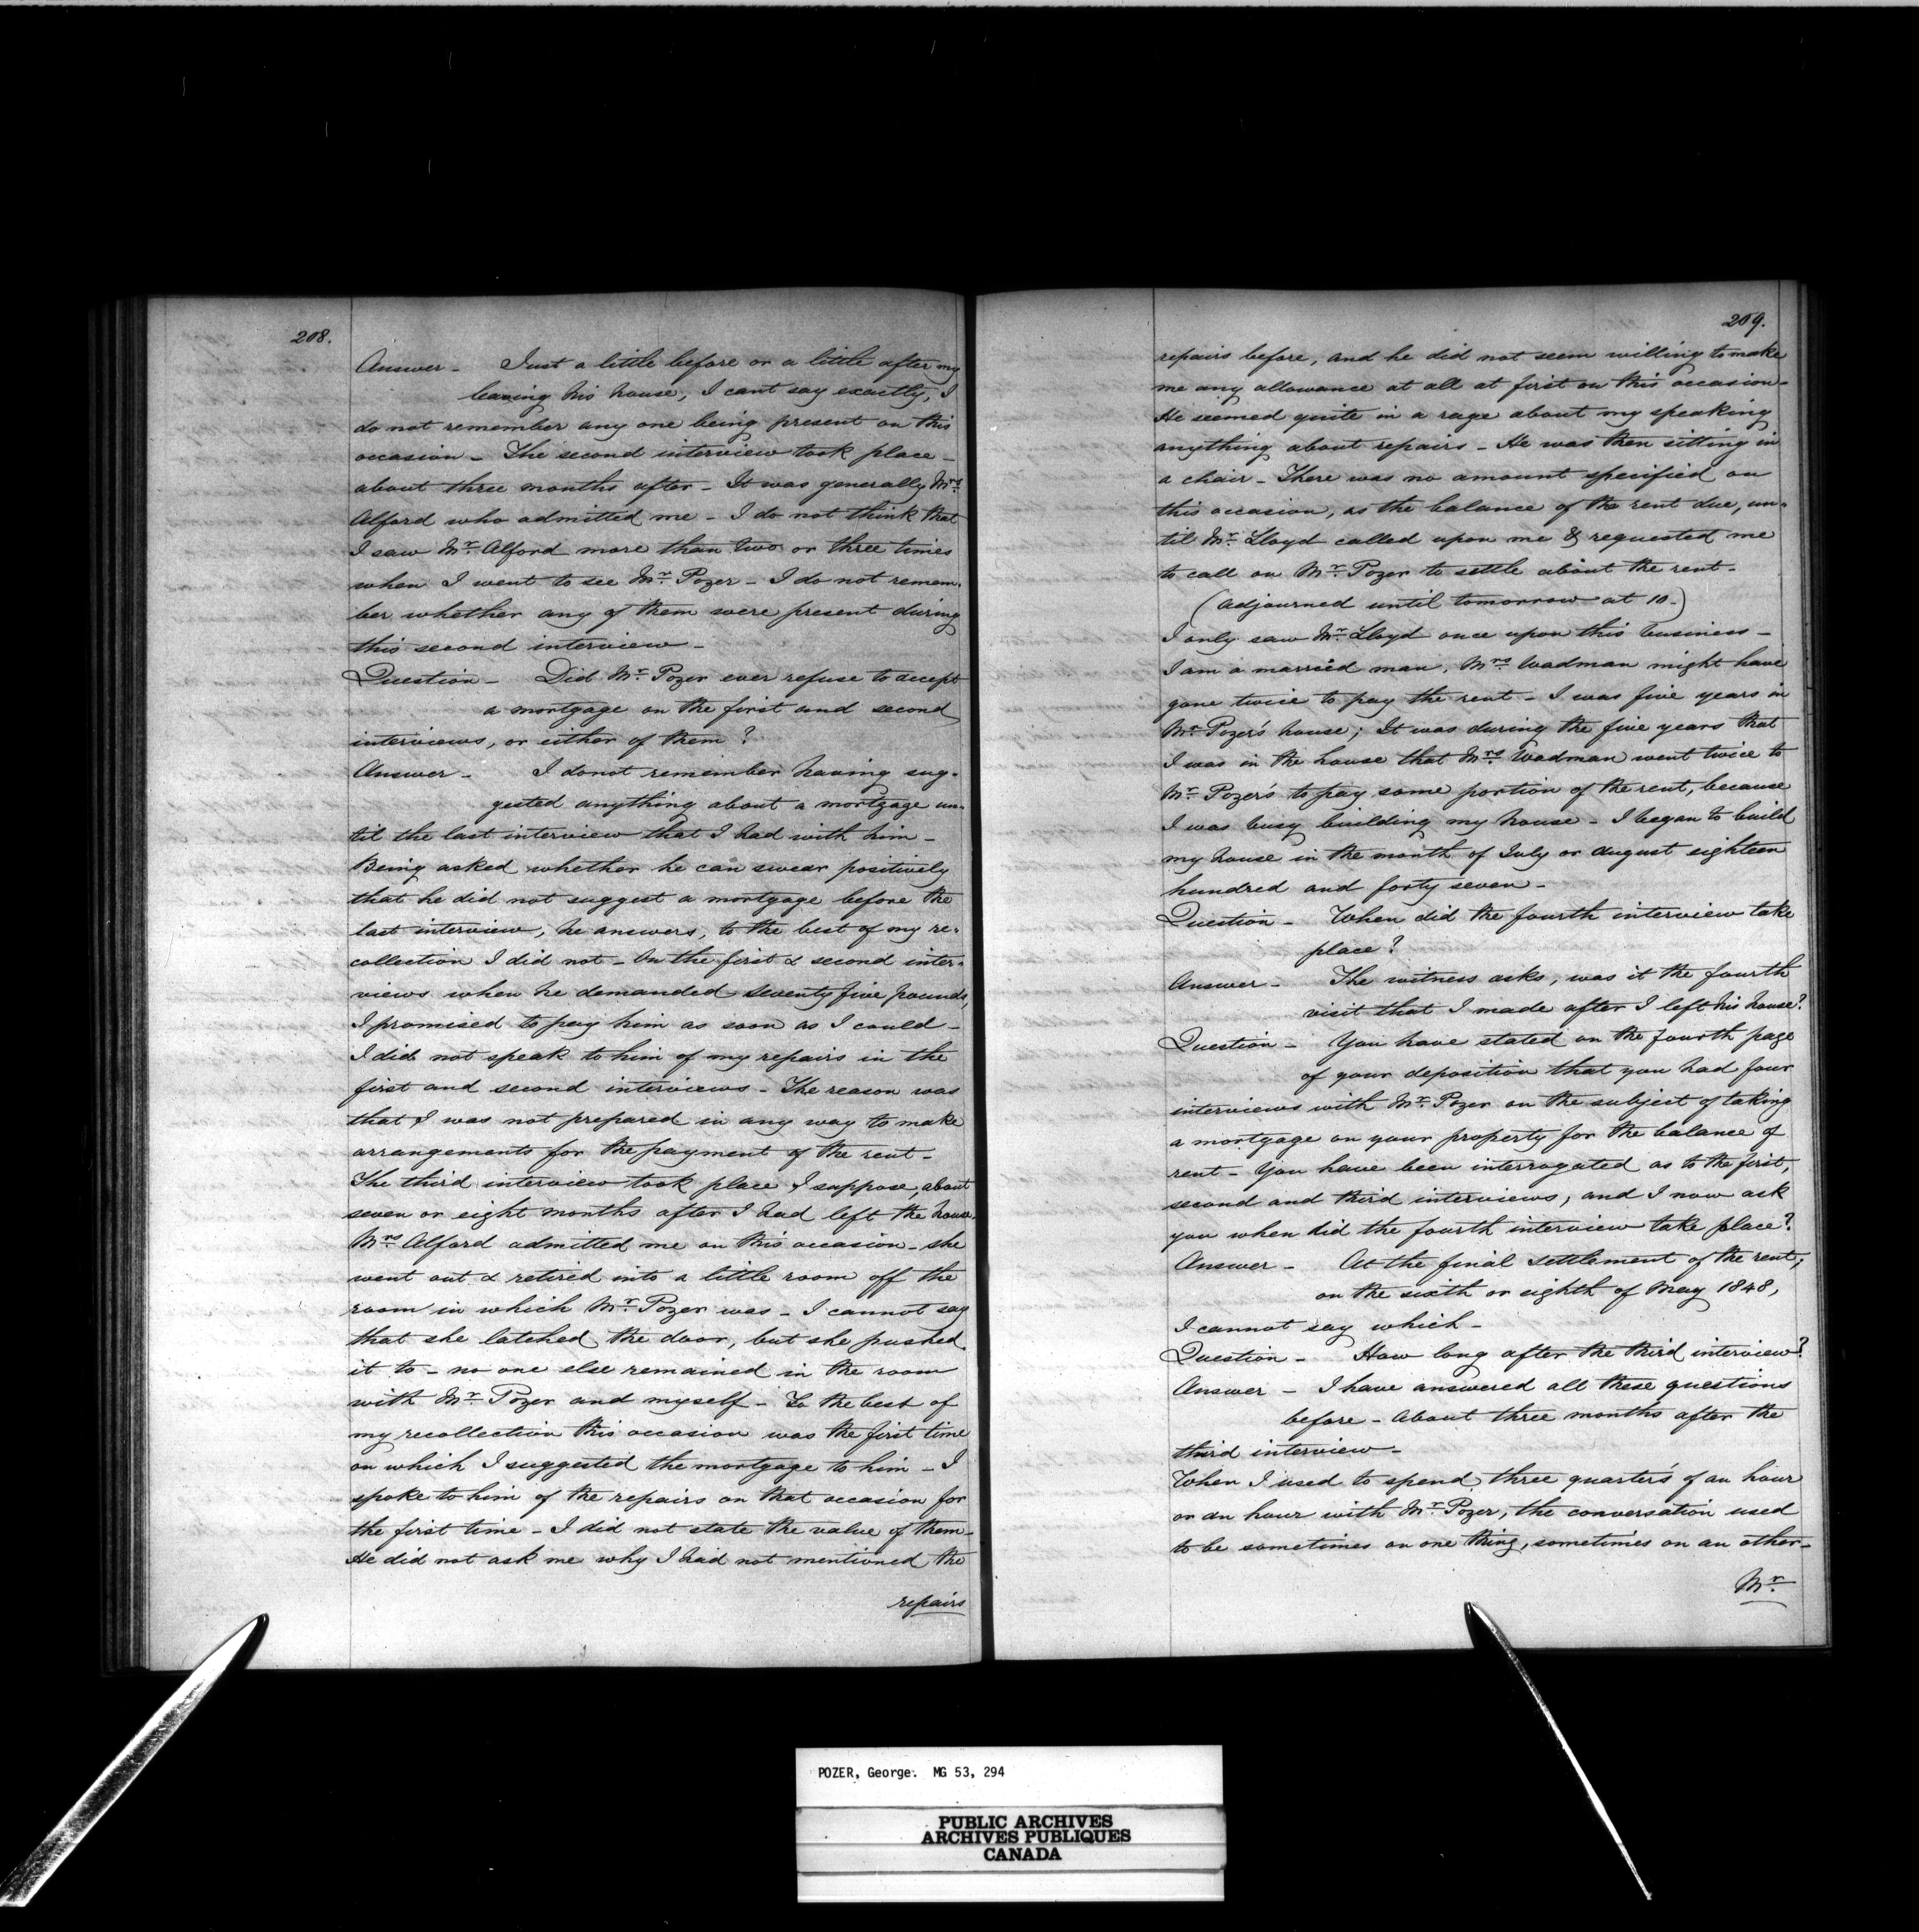 208.
Answer - Just a little before or a little after my
leaving his house, I cant say exactly, I
do not remember any one being present on this
occasion - The second interview took place -
about three months after - It was generally Mrs
Alford who admitted me - I do not think that
I saw Mr. Alford more than two or three times
when I went to see Mr. Pozer - I do not remem-
ber whether any of them were present during
this second interview -
Question - Did Mr. Pozer ever refuse to accept
a mortgage on the first and second
interviews, or either of them?
Answer - I do not remember having sug-
gested anything about a mortgage un-
til the last interview that I had with him -
Being asked whether he can swear positively
that he did not suggest a mortgage before the
last interview, he answers, to the best of my re-
collection I did not - On the first & second inter-
views when he demanded seventy five pounds,
I promised to pay him as soon as I could -
I did not speak to him of my repairs in the
first and second interviews - The reason was
that I was not prepared in any way to make
arrangements for the payment of the rent -
The third interview took place I suppose, about
seven or eight months after I had left the house.
Mrs Alford admitted me on this occasion - she
went out & retired into a little room off the
room in which Mr. Pozer was - I cannot say
that she latched the door, but she pushed
it to - no one else remained in the room
with Mr. Pozer and myself - To the best of
my recollection this occasion was the first time
on which I suggested the mortgage to him - I
spoke to him of the repairs on that occasion for
the first time - I did not state the value of them -
He did not ask me why I had not mentioned the
repairs
209.
repairs before, and he did not seem willing to make
me any allowance at all at first on this occasion -
He seemed quite in a rage about my speaking
anything about repairs - He was then sitting in
a chair - There was no amount specified on
this occasion, as the balance of the rent due, un-
til Mr. Lloyd called upon me & requested me
to call on Mr. Pozer to settle about the rent -
(Adjourned until tomorrow at 10 -)
I only saw Mr. Lloyd once upon this business -
I am a married man, Mrs. Wadman might have
gone twice to pay the rent - I was five years in
Mr. Pozer's house; It was during the five years that
I was in the house that Mrs. Wadman went twice to
Mr. Pozer's to pay some portion of the rent, because
I was busy building my house - I began to build
my house in the month of July or August eighteen
hundred and forty seven -
Question - When did the fourth interview take
place?
Answer - The witness asks, was it the fourth
visit that I made after I left his house?
Question - You have stated on the fourth page
of your deposition that you had four
interviews with Mr. Pozer on the subject of taking
a mortgage on your property for the balance of
rent - You have been interrogated as to the first,
second and third interviews, and I now ask
you when did the fourth interview take place?
Answer - At the final settlement of the rent,
on the sixth or eighth of May 1848,
I cannot say which -
Question - How long after the third interview?
Answer - I have answered all these questions
before - About three months after the
third interview -
When I used to spend three quarters of an hour
or an hour with Mr. Pozer, the conversation used
to be sometimes on one thing, sometimes on an other -
Mr.
POZER, George. MG 53, 294
PUBLIC ARCHIVES
ARCHIVES PUBLIQUES
CANADA